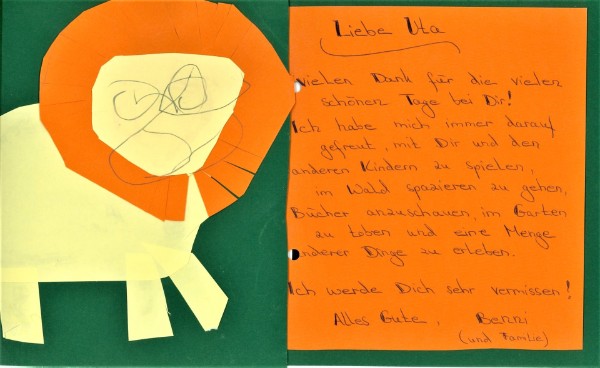 Liebe Uta
Vielen Dank für die vielen
schönen Tage bei Dir!
Ich habe mich immer darauf
gefreut, mit Dir und den
anderen Kindern zu spielen,
im Wald spazieren zu gehen,
Bücher anzuschauen, im Garten
zu toben und eine Menge
anderer Dinge zu erleben.
Ich werde Dich sehr vermissen!
Alles Gute, Benni
(und Familie)